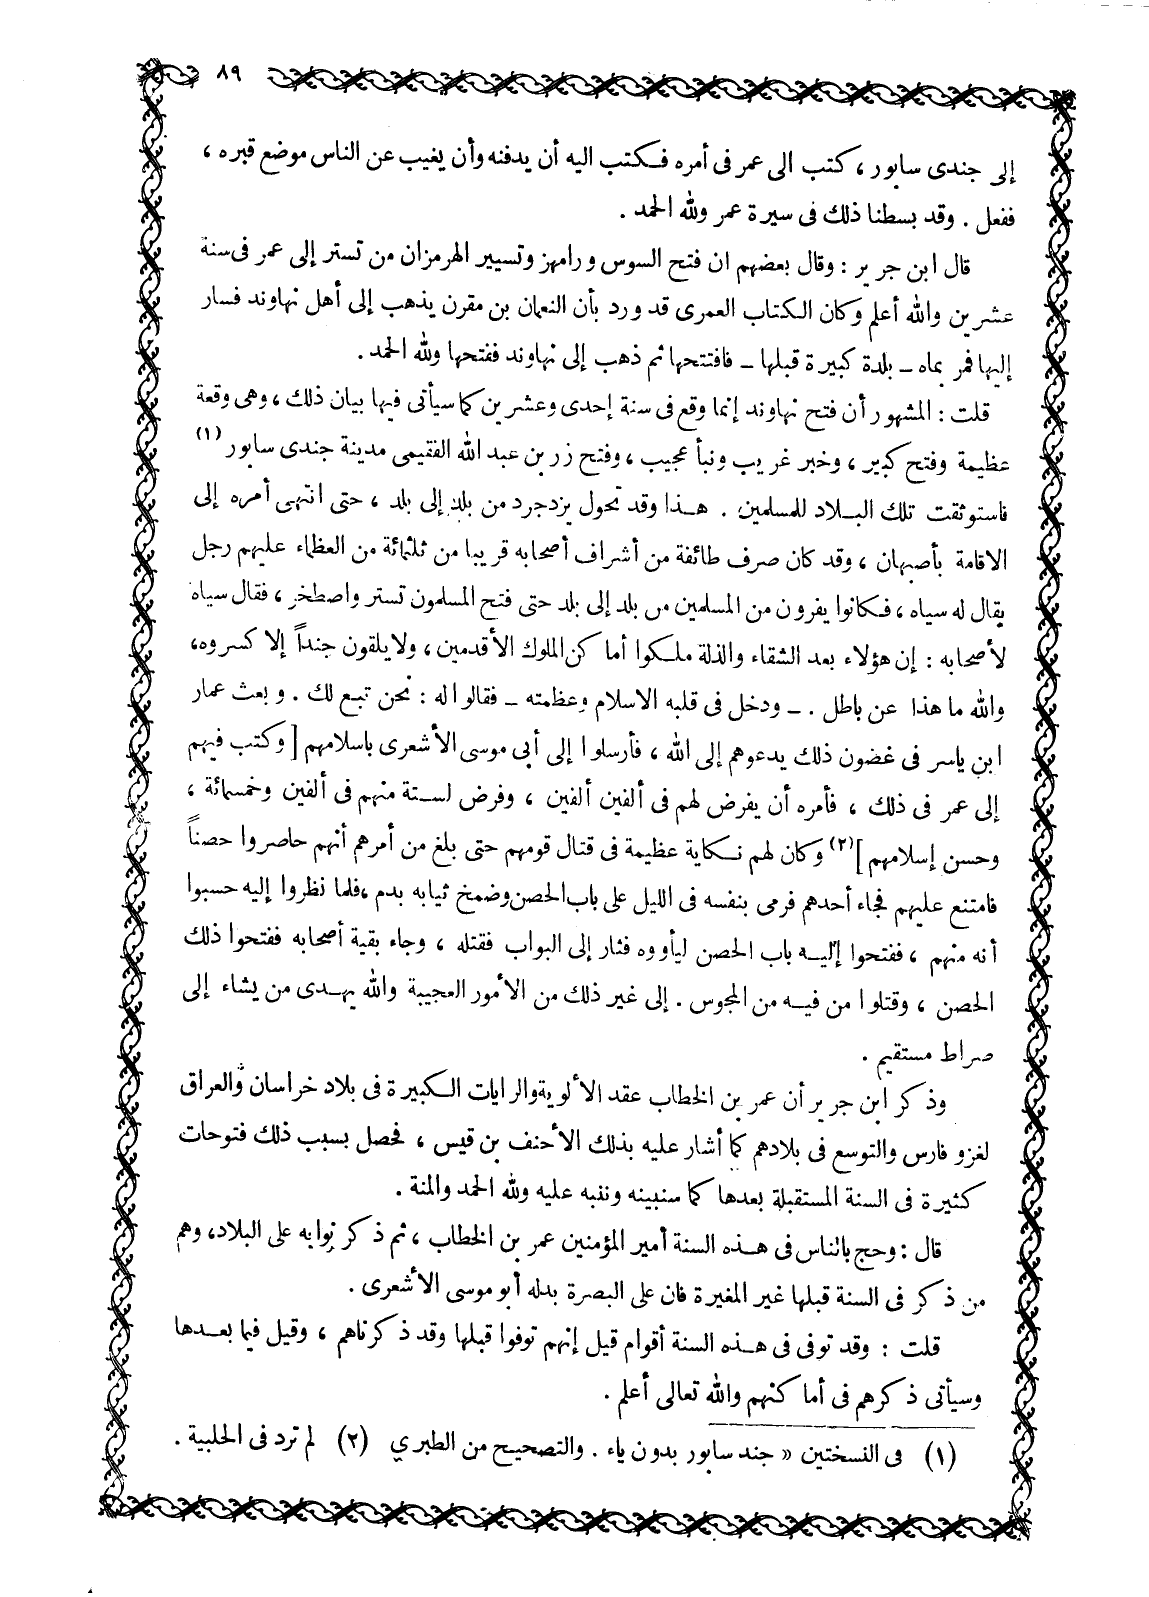 ٨٩
إلى جندى سابور ، كتب الى عمر فى أمره فكتب اليه أن يدفنه وأن يغيب عن الناس موضع قبره ،
ففعل . وقد بسطنا ذلك فى سيرة عمر ولله الحمد .
قال ابن جرير : وقال بعضهم ان فتح السوس ورامهز وتسيير الهرمزان من تستر إلى عمر فى سنة
عشرين والله أعلم وكان الكتاب العمرى قد ورد بأن النعمان بن مقرن يذهب إلى أهل نهاوند فسار
إليها فمر بماه ــ بلدة كبيرة قبلها ــ فافتتحها ثم ذهب إلى نهاوند ففتحها ولله الحمد .
قلت : المشهور أن فتح نهاوند إنما وقع فى سنة إحدى وعشرين كما سيأتى فيها بيان ذلك ، وهى وقعة
عظيمة وفتح كبير ، وخبر غريب ونبأ عجيب ، وفتح زر بن عبد الله الفقيمى مدينة جندى سابور (١)
فاستوثقت تلك البلاد للمسلمين . هذا وقد تحول يزدجرد من بلد إلى بلد ، حتى انتهى أمره إلى
الاقامة بأصبهان ، وقد كان صرف طائفة من أشراف أصحابه قريبا من ثلثمائة من العظماء عليهم رجل
يقال له سياه ، فكانوا يفرون من المسلمين من بلد إلى بلد حتى فتح المسلمون تستر واصطخر ، فقال سياه
لأصحابه : إن هؤلاء بعد الشقاء والذلة ملكوا أماكن الملوك الأقدمين ، ولا يلقون جنداً إلا كسروه ،
والله ما هذا عن باطل . ــ ودخل فى قلبه الاسلام وعظمته ــ فقالوا له : نحن تبع لك . وبعث عمار
ابن ياسر فى غضون ذلك يدعوهم إلى الله ، فأرسلوا إلى أبى موسى الأشعرى باسلامهم [ وكتب فيهم
إلى عمر فى ذلك ، فأمره أن يفرض لهم فى ألفين ألفين ، وفرض لستة منهم فى ألفين وخمسمائة ،
وحسن إسلامهم ](٢) وكان لهم نكاية عظيمة فى قتال قومهم حتى بلغ من أمرهم أنهم حاصروا حصناً
فامتنع عليهم فجاء أحدهم فرمى بنفسه فى الليل على باب الحصن وضمخ ثيابه بدم ، فلما نظروا إليه حسبوا
أنه منهم ، ففتحوا إليه باب الحصن ليأووه فثار إلى البواب فقتله ، وجاء بقية أصحابه ففتحوا ذلك
الحصن ، وقتلوا من فيه من المجوس . إلى غير ذلك من الأمور العجيبة والله يهدى من يشاء إلى
صراط مستقيم .
وذكر ابن جرير أن عمر بن الخطاب عقد الألوية والرايات الكبيرة فى بلاد خراسان والعراق
لغزو فارس والتوسع فى بلادهم كما أشار عليه بذلك الأحنف بن قيس ، فحصل بسبب ذلك فتوحات
كثيرة فى السنة المستقبلة بعدها كما سنبينه وننبه عليه ولله الحمد والمنة .
قال : وحج بالناس فى هذه السنة أمير المؤمنين عمر بن الخطاب ، ثم ذكر نوابه على البلاد ، وهم
من ذكر فى السنة قبلها غير المغيرة فان على البصرة بدله أبو موسى الأشعرى .
قلت : وقد توفى فى هذه السنة أقوام قيل إنهم توفوا قبلها وقد ذكرناهم ، وقيل فيما بعدها
وسيأتى ذكرهم فى أماكنهم والله تعالى أعلم .
(١) فى النسختين « جند سابور بدون ياء . والتصحيح من الطبري (٢) لم ترد فى الحلبية .